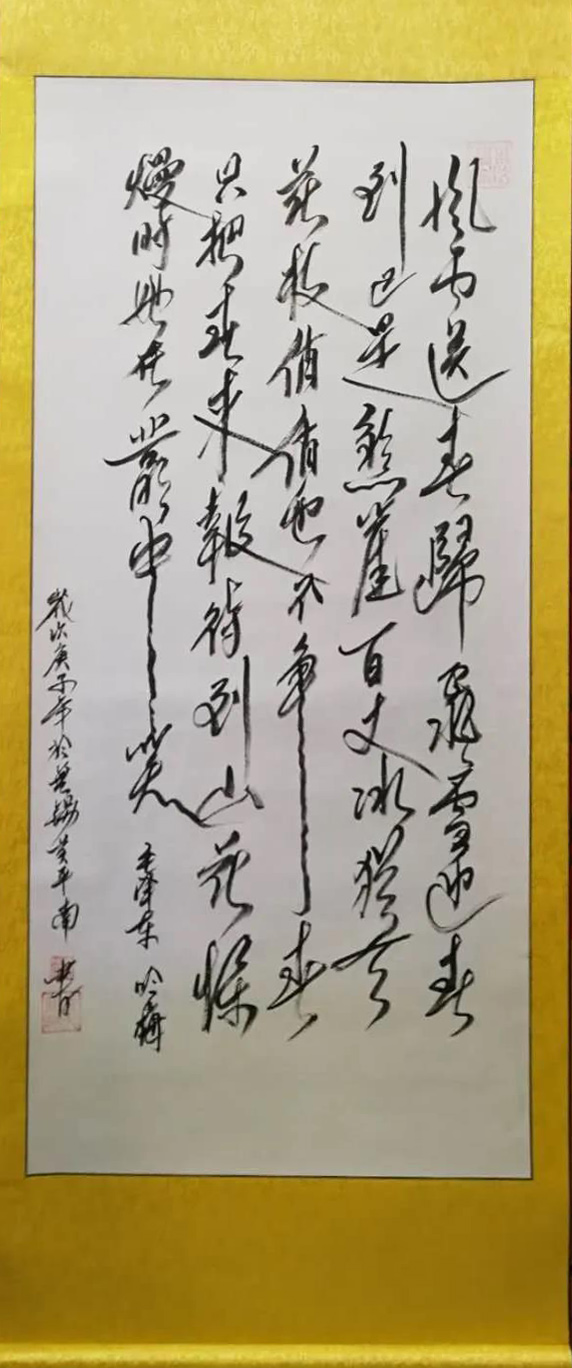 風雨送春歸飛雪迎春
到已是懸崖百丈冰猶有
花枝俏俏也不争春
只把春来報待到山花爛
熳時她在叢中笑 毛澤東 咏梅
歲次庚子年於無錫黄平南書